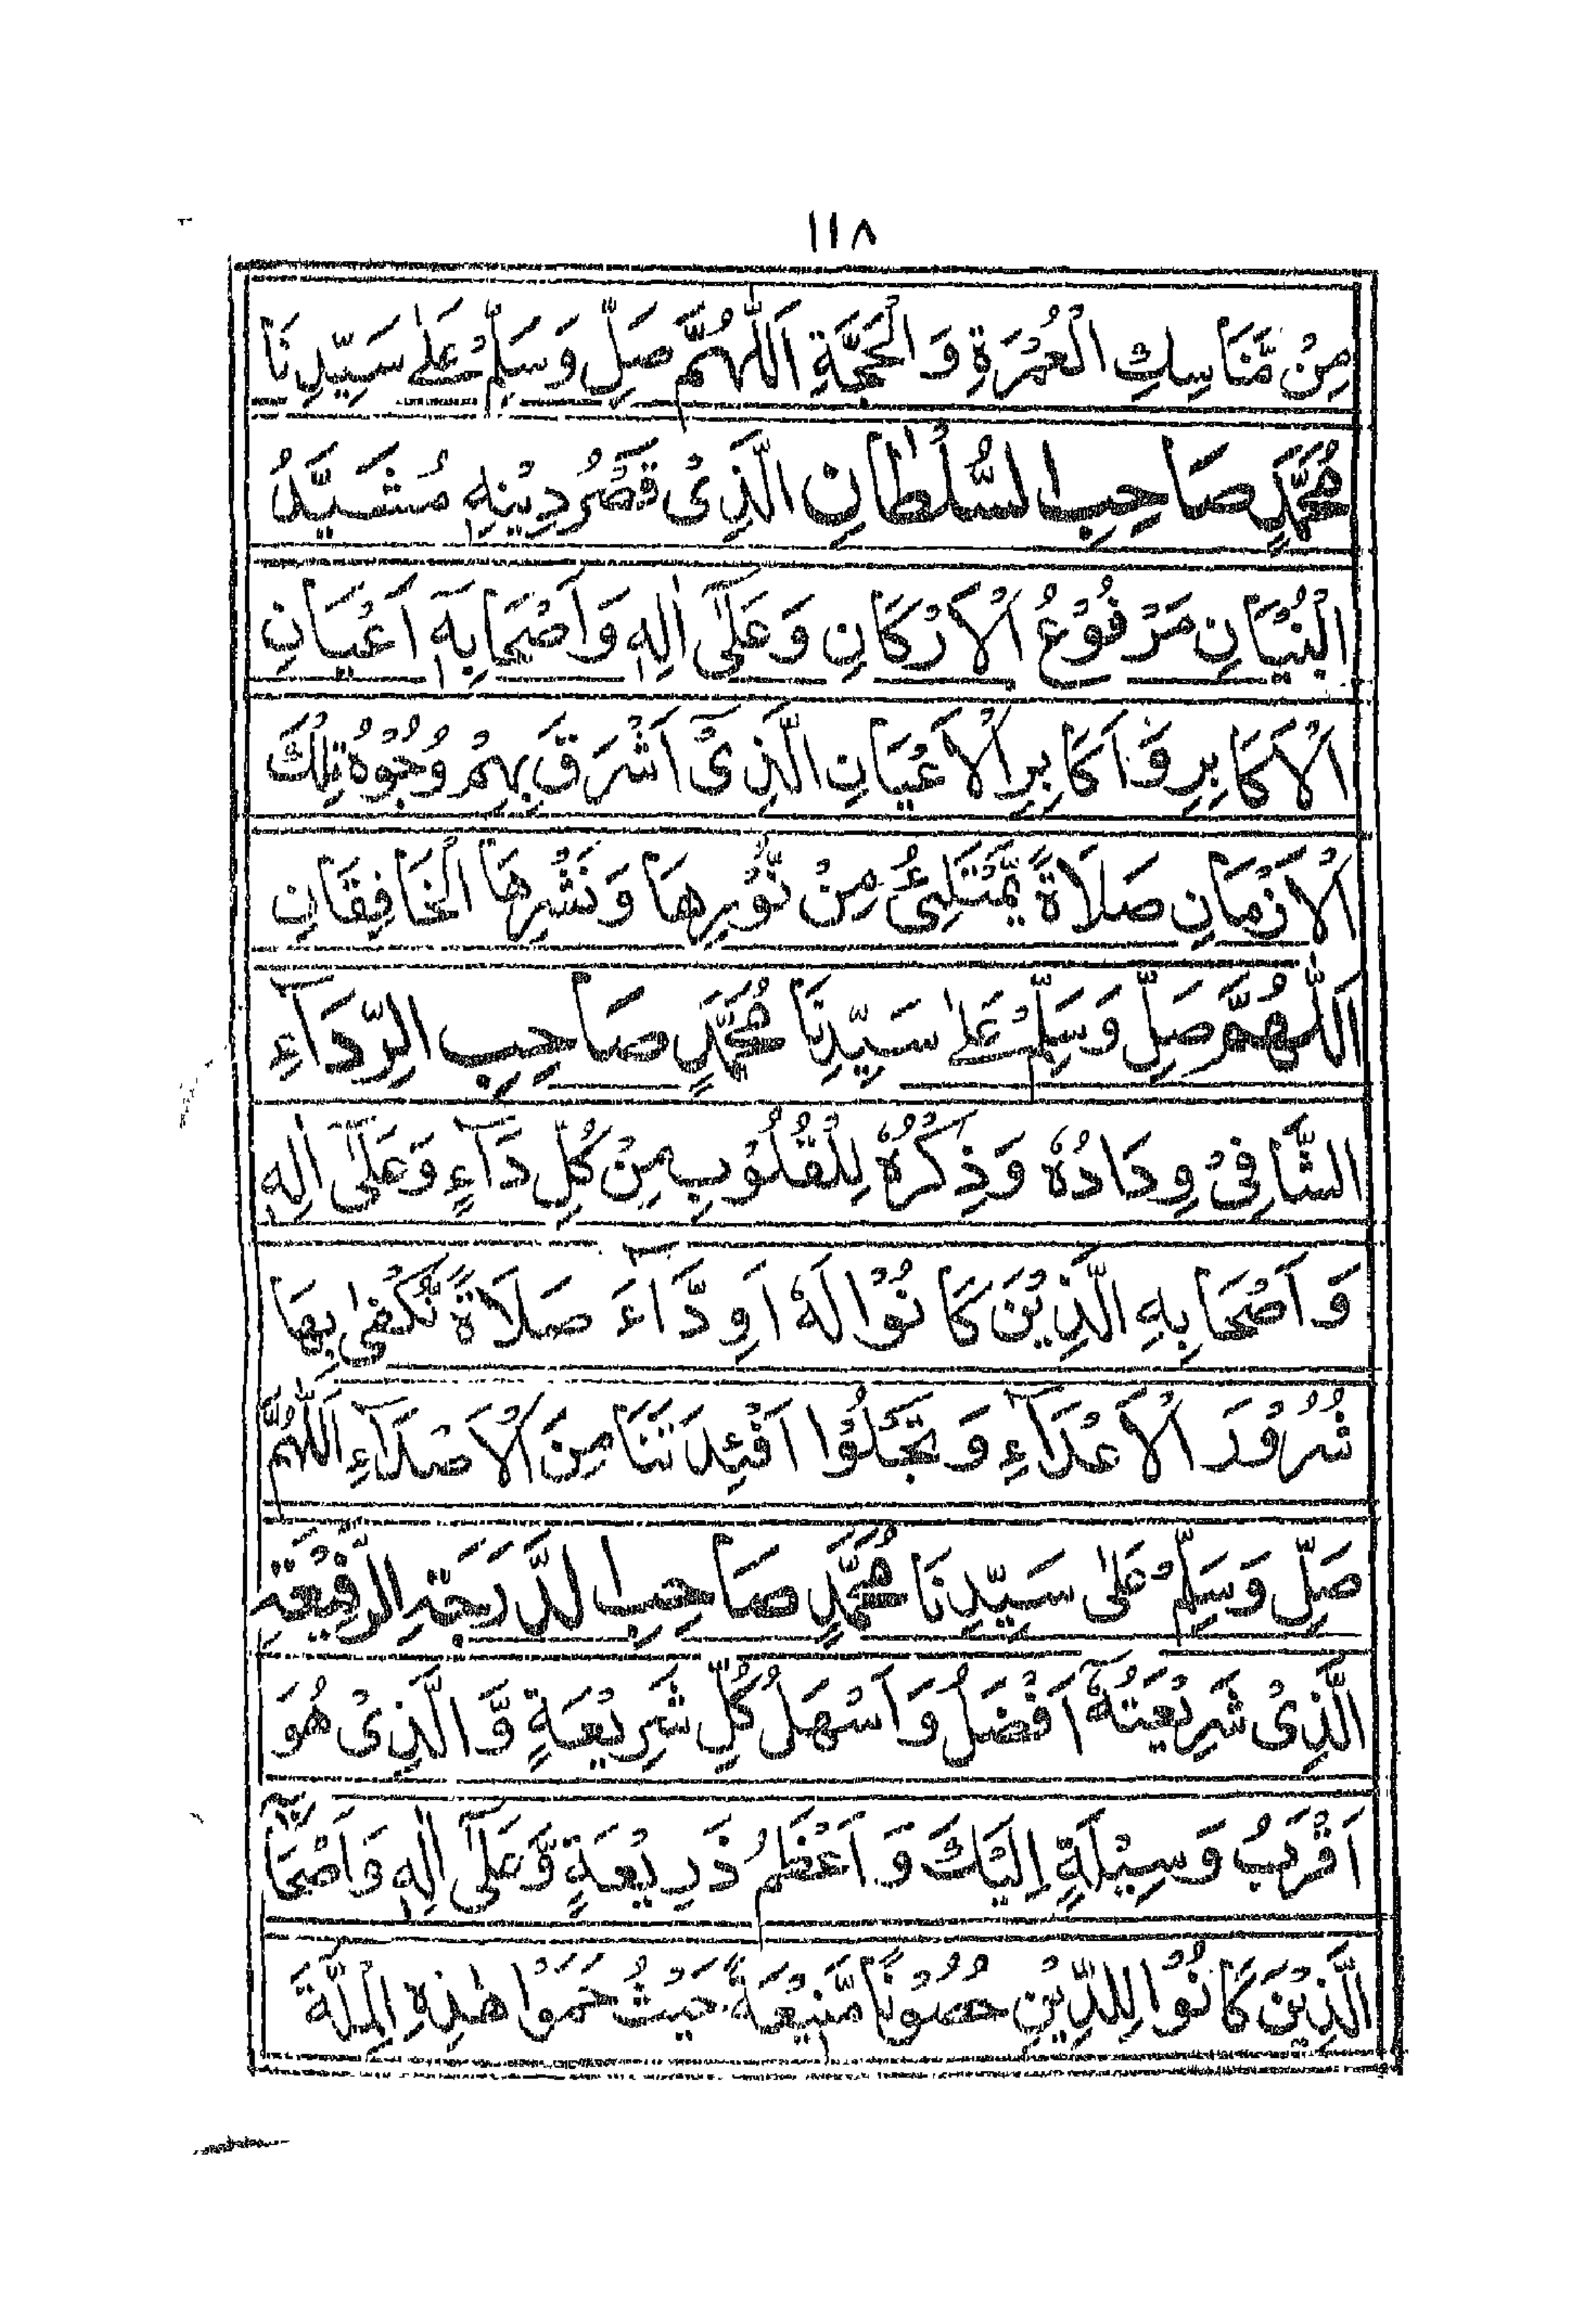 ١١٨
مِنْ مَّنَاسِكِ الْعُمْرَةِ وَالْحَجَّةِ اَللّٰهُمَّ صَلِّ وَسَلِّمْ عَلٰى سَيِّدِنَا
مُحَمَّدٍ صَاحِبِ السُّلْطَانِ الَّذِىْ قَصْرُ دِيْنِهٖ مُشَيَّدُ
الْبُنْيَانِ مَرْفُوْعُ الْاَرْكَانِ وَعَلٰٓى اٰلِهٖ وَاَصْحَابِهٖٓ اَعْيَانِ
الْاَكَابِرِ وَاَكَابِرِ الْاَعْيَانِ الَّذِىْٓ اَشْرَقَ بِهِمْ وُجُوْهُ تِلْكَ
الْاَزْمَانِ صَلَاةً يَّمْتَلِئُ مِنْ نُّوْرِهَا وَنَشْرِهَا الْخَافِقَانِ
اَللّٰهُمَّ صَلِّ وَسَلِّمْ عَلٰى سَيِّدِنَا مُحَمَّدٍ صَاحِبِ الرِّدَآءِ
الشَّافِىْ وِدَادُهٗ وَذِكْرُهٗ لِلْقُلُوْبِ مِنْ كُلِّ دَآءٍ وَعَلٰٓى اٰلِهٖ
وَاَصْحَابِهِ الَّذِيْنَ كَانُوْا لَهٗ اَوِدَّاءَ صَلَاةً نُّكْفٰى بِهَا
شُرُوْرَ الْاَعْدَآءِ وَتَجْلُوْا اَفْئِدَتَنَا مِنَ الْاَصْدَآءِ اَللّٰهُمَّ
صَلِّ وَسَلِّمْ عَلٰى سَيِّدِنَا مُحَمَّدٍ صَاحِبِ الدَّرَجَةِ الرَّفِيْعَةِ
الَّذِىْ شَرِيْعَتُهٗٓ اَفْضَلُ وَاَسْهَلُ كُلِّ شَرِيْعَةٍ وَّالَّذِىْ هُوَ
اَقْرَبُ وَسِيْلَةٍ اِلَيْكَ وَاَعْظَمُ ذَرِيْعَةٍ وَّعَلٰٓى اٰلِهٖ وَاَصْحَابِهِ
الَّذِيْنَ كَانُوْا لِلدِّيْنِ حُصُوْنًا مَّنِيْعَةً حَيْثُ حَمَوْا هٰذِهِ الْمِلَّةَ